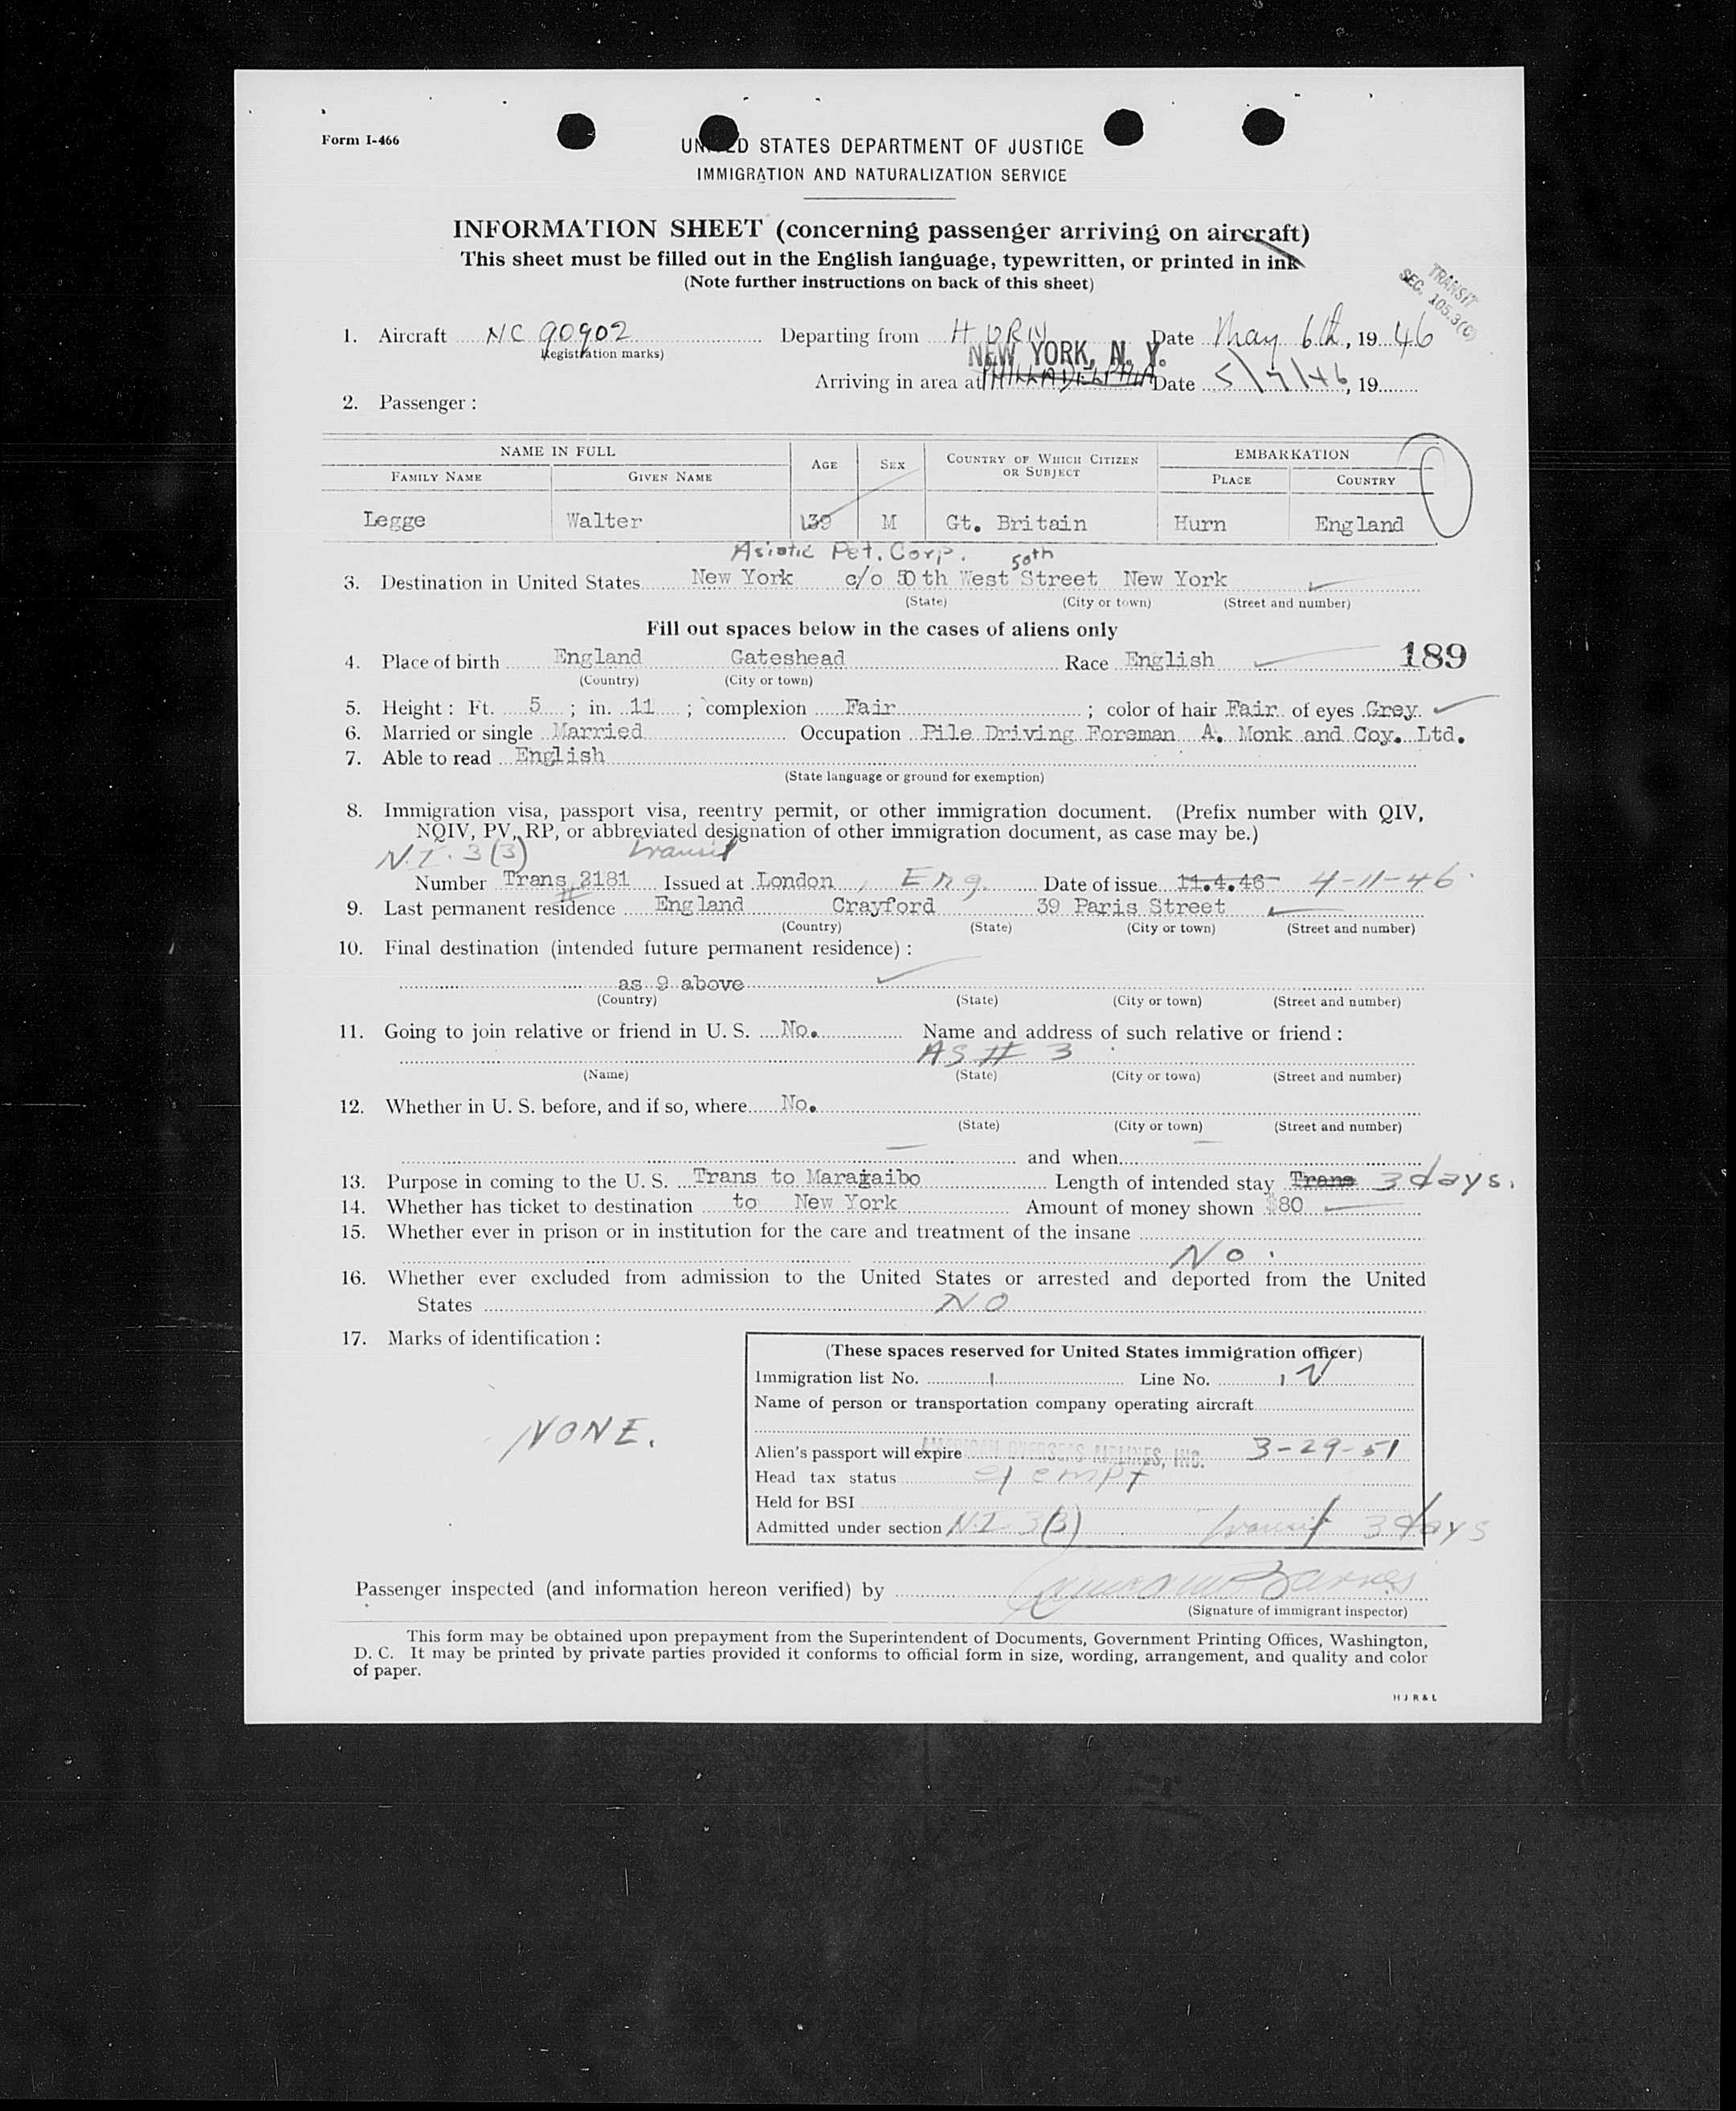 Form I-466
UNITED STATES DEPARTMENT OF JUSTICE
IMMIGRATION AND NATURALIZATION SERVICE
INFORMATION SHEET (concerning passenger arriving on aircraft)
This sheet must be filled out in the English language, typewritten, or printed in ink
(Note further instructions on back of this sheet)
TRANSIT
SEC. 105.3(C)
1. Aircraft NC 90902 Departing from HURN Date May 6th, 1946
(Registration marks)
NEW YORK, N. Y.
Arriving in area at PHILLADELPHIA Date 5/7/46, 19
2. Passenger:
NAME IN FULL AGE SEX COUNTRY OF WHICH CITIZEN OR SUBJECT EMBARKATION
FAMILY NAME GIVEN NAME PLACE COUNTRY
Legge Walter 39 M Gt. Britain Hurn England
Asiatic Pet. Corp. 50th
3. Destination in United States New York c/o 50th West Street New York
(State) (City or town) (Street and number)
Fill out spaces below in the cases of aliens only
4. Place of birth England Gateshead Race English 189
(Country) (City or town)
5. Height: Ft. 5; in. 11; complexion Fair; color of hair Fair of eyes Grey
6. Married or single Married Occupation Pile Driving Foreman A. Monk and Coy. Ltd.
7. Able to read English
(State language or ground for exemption)
8. Immigration visa, passport visa, reentry permit, or other immigration document. (Prefix number with QIV,
NQIV, PV, RP, or abbreviated designation of other immigration document, as case may be.)
N.I. 3(3) transit
Number Trans 2181 Issued at London, Eng. Date of issue 11.4.46 4-11-46
9. Last permanent residence England Crayford 39 Paris Street
(Country) (State) (City or town) (Street and number)
10. Final destination (intended future permanent residence):
as 9 above
(Country) (State) (City or town) (Street and number)
11. Going to join relative or friend in U. S. No. Name and address of such relative or friend:
AS # 3
(Name) (State) (City or town) (Street and number)
12. Whether in U. S. before, and if so, where No.
(State) (City or town) (Street and number)
and when
13. Purpose in coming to the U. S. Trans to Maracaibo Length of intended stay Trans 3 days.
14. Whether has ticket to destination to New York Amount of money shown $80
15. Whether ever in prison or in institution for the care and treatment of the insane
No.
16. Whether ever excluded from admission to the United States or arrested and deported from the United
States NO
17. Marks of identification:
NONE.
(These spaces reserved for United States immigration officer)
Immigration list No. 1 Line No.
Name of person or transportation company operating aircraft
AMERICAN OVERSEAS AIRLINES, INC.
Alien's passport will expire 3-29-51
Head tax status exempt
Held for BSI
Admitted under section N.I. 3(3) transit 3 days
Passenger inspected (and information hereon verified) by Barnes
(Signature of immigrant inspector)
This form may be obtained upon prepayment from the Superintendent of Documents, Government Printing Offices, Washington,
D. C. It may be printed by private parties provided it conforms to official form in size, wording, arrangement, and quality and color
of paper.
H J R & L